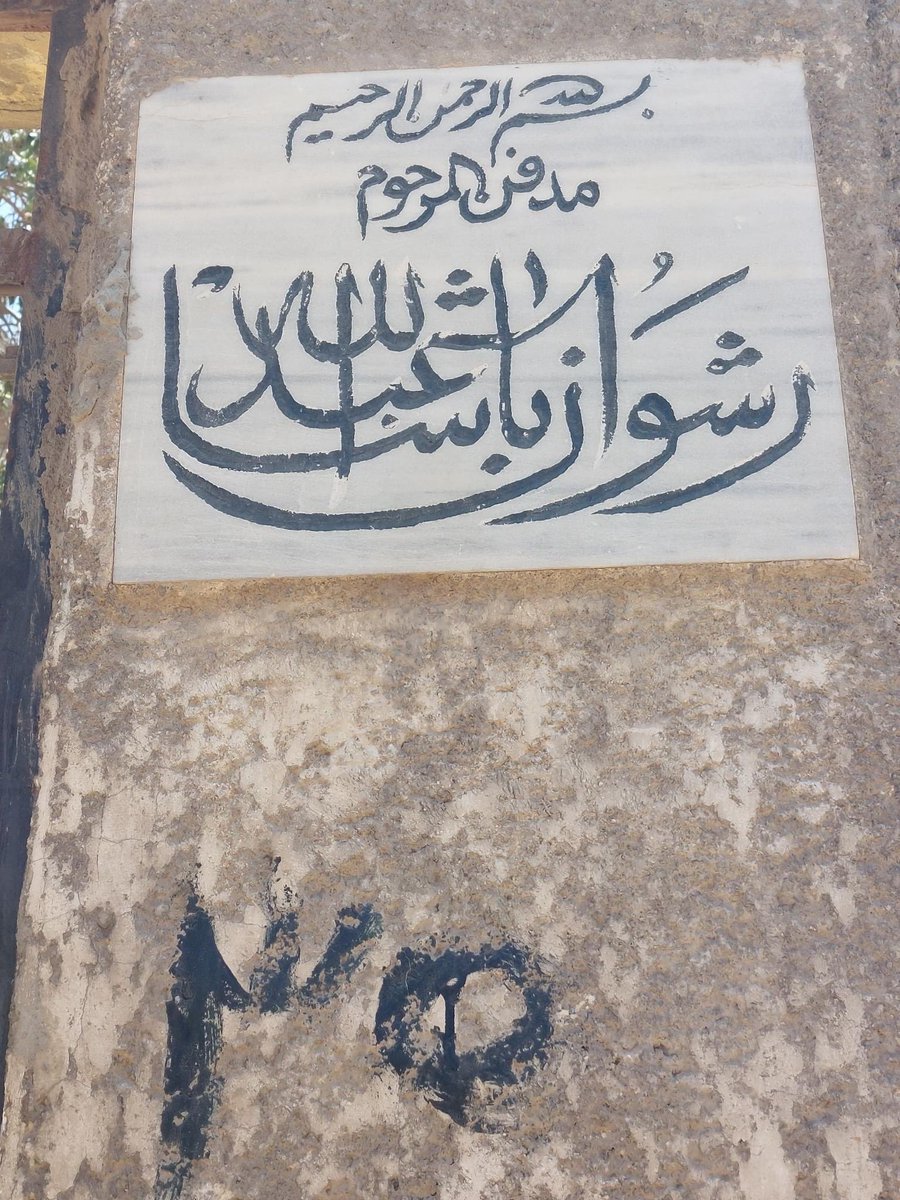 بسم الله الرحمن الرحيم
مدفن المرحوم
رشوان باشا عبد الله
٣٥